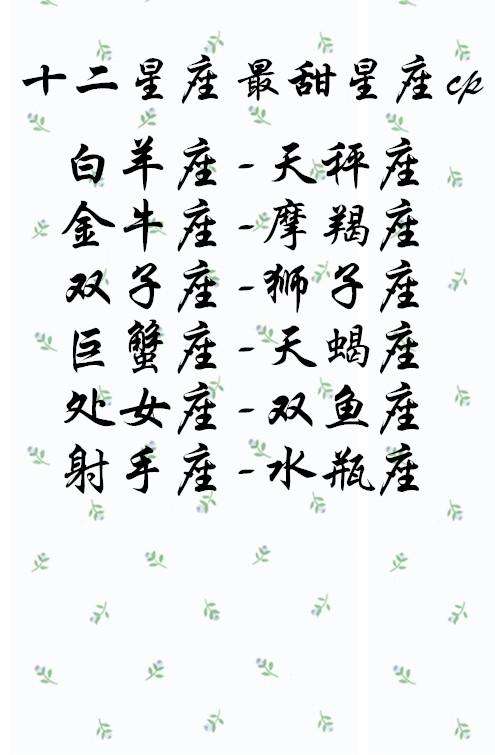 十二星座最甜星座cp
白羊座-天秤座
金牛座-摩羯座
双子座-狮子座
巨蟹座-天蝎座
处女座-双鱼座
射手座-水瓶座